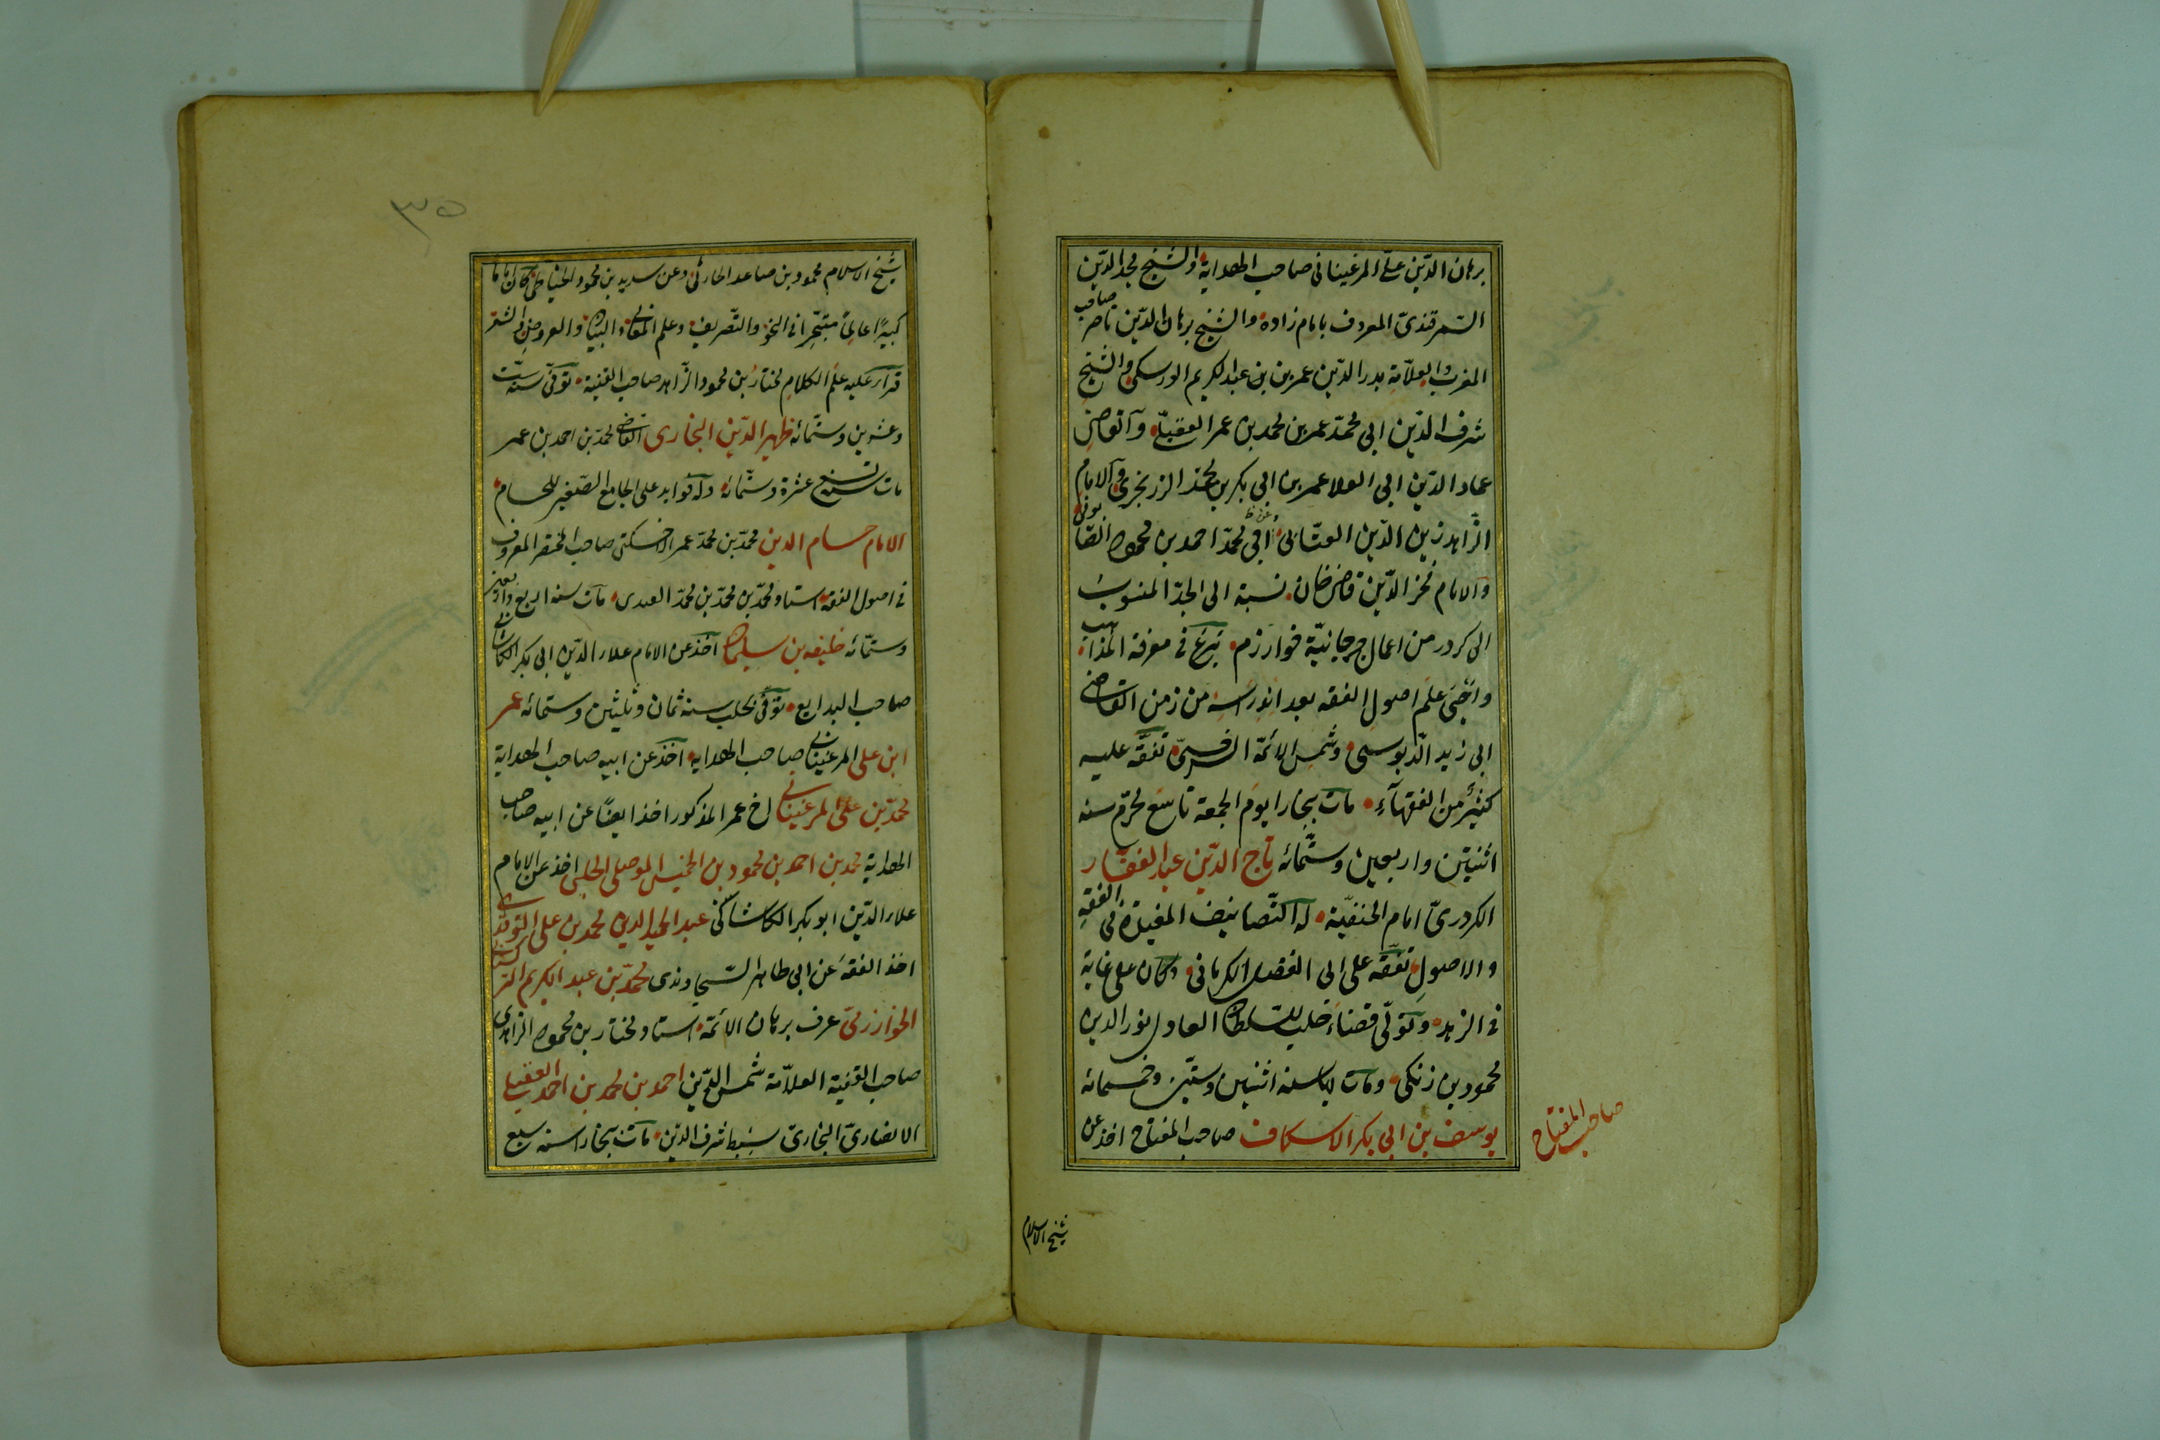 برهان الدّين علىّ المرغينانى صاحب الهداية والشيخ مجد الدّين
السّمرقندىّ المعروف بامام زاده والشيخ برهان الدّين ناصر صاحب
المغرب والعلاّمة بدر الدّين عمر بن عبد الكريم الورسكى والشيخ
شرف الدّين ابى محمّد عمر بن محمد بن عمر العقيلىّ والقاضى
عماد الدّين ابى العلا عمر بن ابى بكر بن محمّد الزرنجرى والامام
الزّاهد زين الدّين العتّابى ابى محمّد احمد بن محمود الصّابونى
والامام فخر الدّين قاضى خان نسبة الى الجدّ المنسوب
الى كردر من اعمال جرجانيّة خوارزم برع فى معرفة المذاهب
واحيى علم اصول الفقه بعد اندراسه من زمن القاضى
ابى زيد الدّبوسى وشمس الائمّة السرخسىّ تفقّه عليه
كثير من الفقهآء مات ببخارا يوم الجمعة تاسع محرّم سنه
اثنيتن واربعين وستّمائه تاج الدّين عبد الغفّار
الكردرىّ امام الحنفيّة له التّصانيف المفيدة فى الفقه
والاصول تفقّه على ابى الفضل الكرمانى وكان على غاية
فى الزهد وتولّى قضاء حلب للسّلطان العادل نور الدين
محمود بن زنكى ومات بها سنه اثنين وستين وخمسمائه
يوسف بن ابى بكر الاسكاف صاحب المفتاح اخذ عن
صاحب المفتاح
شيخ الاسلام
٣٥
شيخ الاسلام محمود بن صاعد الحارثى وعن سديد بن محمود الحناطى كان اماما
كبيرًا عالمًا متبحّرا فى النحو والتّصريف وعلم المعانى والبيان والعروض والشعر
قرأ عليه علم الكلام مختار بن محمود الزّاهد صاحب القنية توفّى سنة ستّ
وعشرين وستمائه ظهير الدّين البخارى القاضى محمّد بن احمد بن عمر
مات سنه تسع عشرة وستّمائه وله فوايد على الجامع الصّغير للحسام
الامام حسام الدين محمّد بن محمّد عمر الاخسكتى صاحب المختصر المعروف
فى اصول الفقه استاد محمّد بن محمّد بن محمّد العبدى مات سنه اربع واربعين
وستمّائه خليفه بن سليمان اخذ عن الامام علاء الدّين ابى بكر الكاشانى
صاحب البدايع توفّى بحلب سنه ثمان وثلثين وستمائه عمر
ابن على المرغينانى صاحب الهدايه اخذ عن ابيه صاحب الهداية
محمّد بن علىّ المرغينانى اخ عمر المذكور اخذ ايضًا عن ابيه صاحب
الهداية محمد بن احمد بن محمود بن الخيس الموصلى الحلبى اخذ عن الامام
علاء الدّين ابو بكر الكاشانى عبد المجيد الدين محمد بن على
اخذ الفقه عن ابى طاهر السّجاوندى محمّد بن عبد الكريم التركستانى
الخوارزمىّ عرف برهان الائمّة استاد مختار بن محمود الزاهدى
صاحب القنية العلاّمة شمس الدّين احمد بن محمد بن احمد العقيلى
الانصارىّ البخارىّ سبط شرف الدّين مات ببخارا سنه سبع